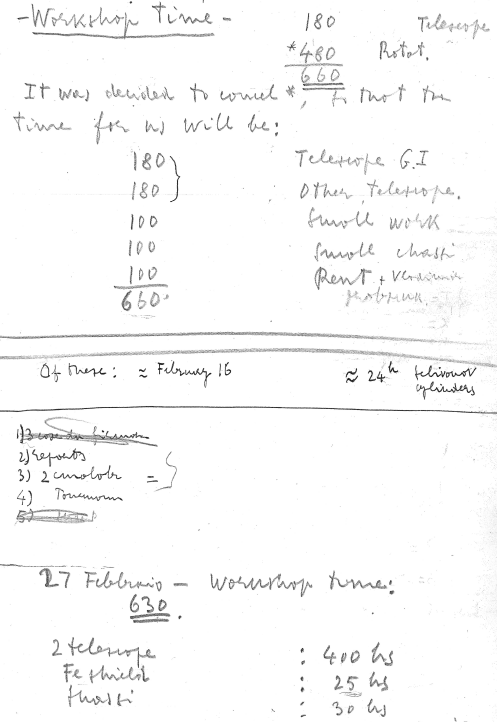 - Workshop Time -
180 Telescope
*480 Rotat.
660
It was decided to cancel *, so that the
time for us will be:
180 Telescope G.I
180 Other telescope.
100 Small work
100 Small chassi
100 Rent +
660.
Of these: ≈ February 16 ≈ 24h
cylinders
2) reports
3) 2
4)
27 Febbraio - Workshop time:
630.
2 telescope : 400 hs
Fe shield : 25 hs
chassi : 30 hs